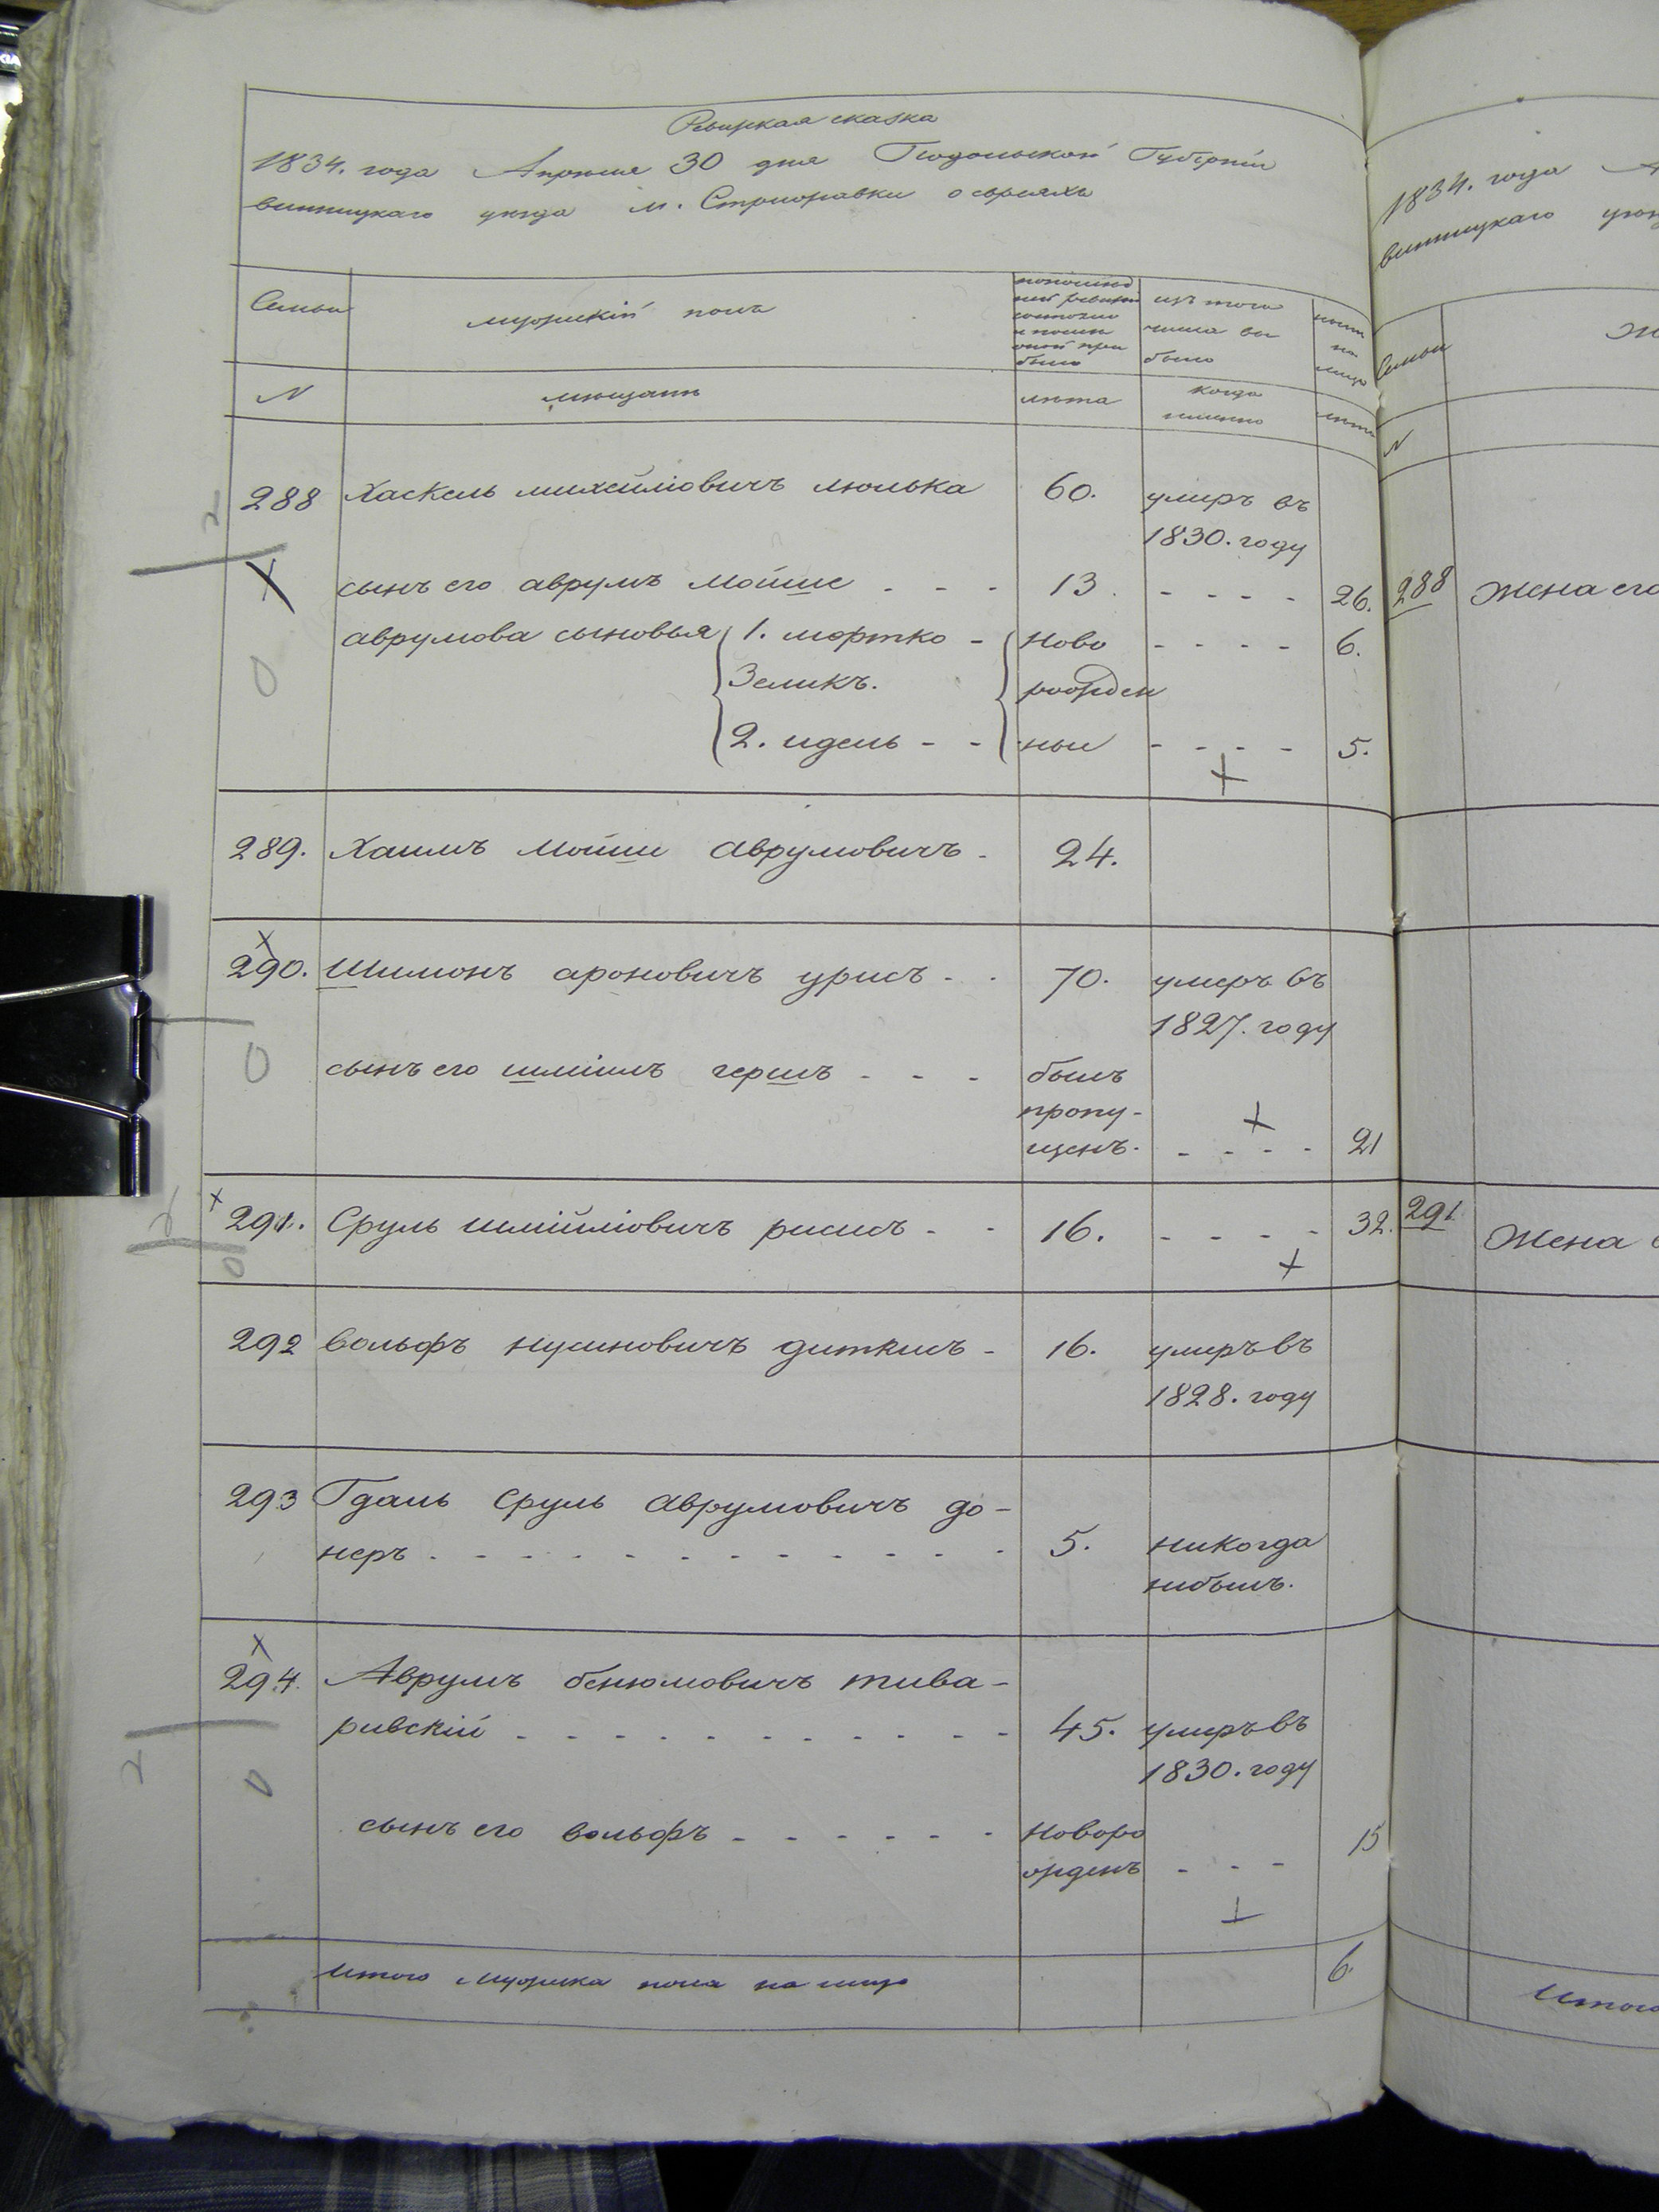 Ревизкая сказка
1834. года Апреля 30 дня Подольской Губернiи
винницкаго уезда м. Стрижавки о евреяхъ
Семьи
мужескiй полъ
изъ того числа вы было
N
мещане
лета
когда именно
лета
288 Хаскель михелiовичъ люлька 60. умеръ въ
1830. году
сынъ его аврумъ мойше - - - 13. - - - - 26.
аврумова сыновья 1. мортко - ново - - - - 6.
Зеликъ. рожден
2. идель - - ныи - - - - 5.
289. Хаимъ мойше аврумовичъ - 24.
290. Шимонъ ароновичъ урисъ - - 70. умеръ въ
1827. году
сынъ его шмiилъ гершъ - - - былъ
пропу-
щенъ. - - - - 21
291. Сруль шмiилiовичъ рисисъ - - 16. - - - - 32.
292 вольфъ нусиновичъ диткисъ - 16. умеръ въ
1828. году
293 Гдаль сруль аврумовичъ до-
неръ - - - - - - - - - - - - 5. никогда
небылъ.
294. Аврумъ бенюмовичъ тива-
ривскiй - - - - - - - - - - - 45. умеръ въ
1830. году
сынъ его вольфъ - - - - - - новоро
жденъ - - - 15
итого мужеска пола на лицо 6.
1834. года
винницкаго
Семьи
N
288 Жена его
291 Жена
Итого